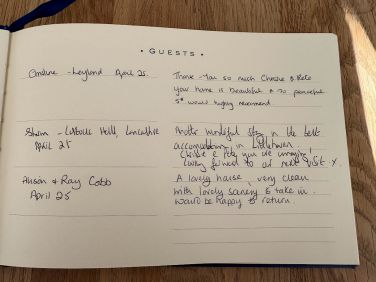 • GUESTS •
- Leyland April 25.
Thank-You so much Chrissie & Pete
your home is beautiful & so peaceful
5* would highly recommend
Lancashire
April 25
Another wonderful stay in the best
accomodation in
Chrissie & Pete you are amazing!
Looking forward to our next visit x
Alison & Ray Cobb
April 25
A lovely house, very clean
with lovely scenery to take in.
Would be happy to return.